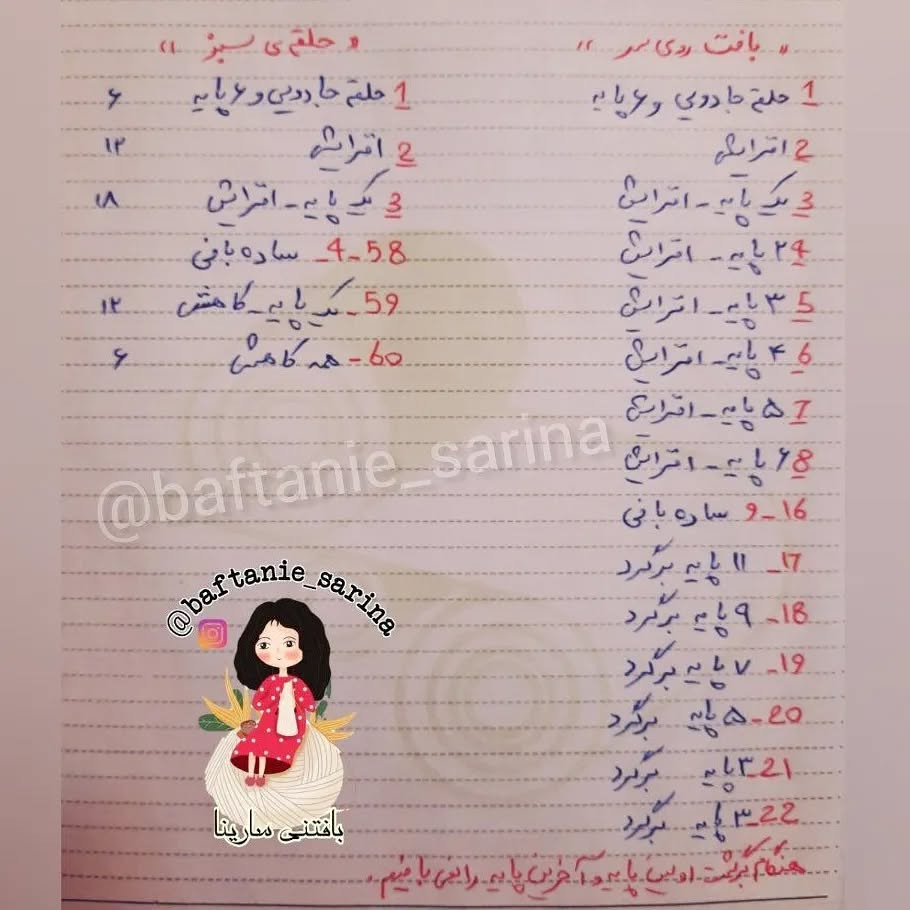 « بافت روی سر »
1 حلقه جادویی و ۶ پایه
2 افزایش
3 یک پایه - افزایش
4 ۲ پایه - افزایش
5 ۳ پایه - افزایش
6 ۴ پایه - افزایش
7 ۵ پایه - افزایش
8 ۶ پایه - افزایش
9_16 ساده بافی
17_ ۱۱ پایه برگرد
18_ ۹ پایه برگرد
19_ ۷ پایه برگرد
20_ ۵ پایه برگرد
21_ ۳ پایه برگرد
22_ ۳ پایه برگرد
هنگام برگشت اولین پایه و آخرین پایه را نمی بافیم.
« حلقه ی سبز »
1 حلقه جادویی و ۶ پایه ۶
2 افزایش ۱۲
3 یک پایه - افزایش ۱۸
4_58_ ساده بافی
59_ یک پایه - کاهش ۱۲
60- همه کاهش ۶
@baftanie_sarina
@baftanie_sarina
بافتنی سارینا